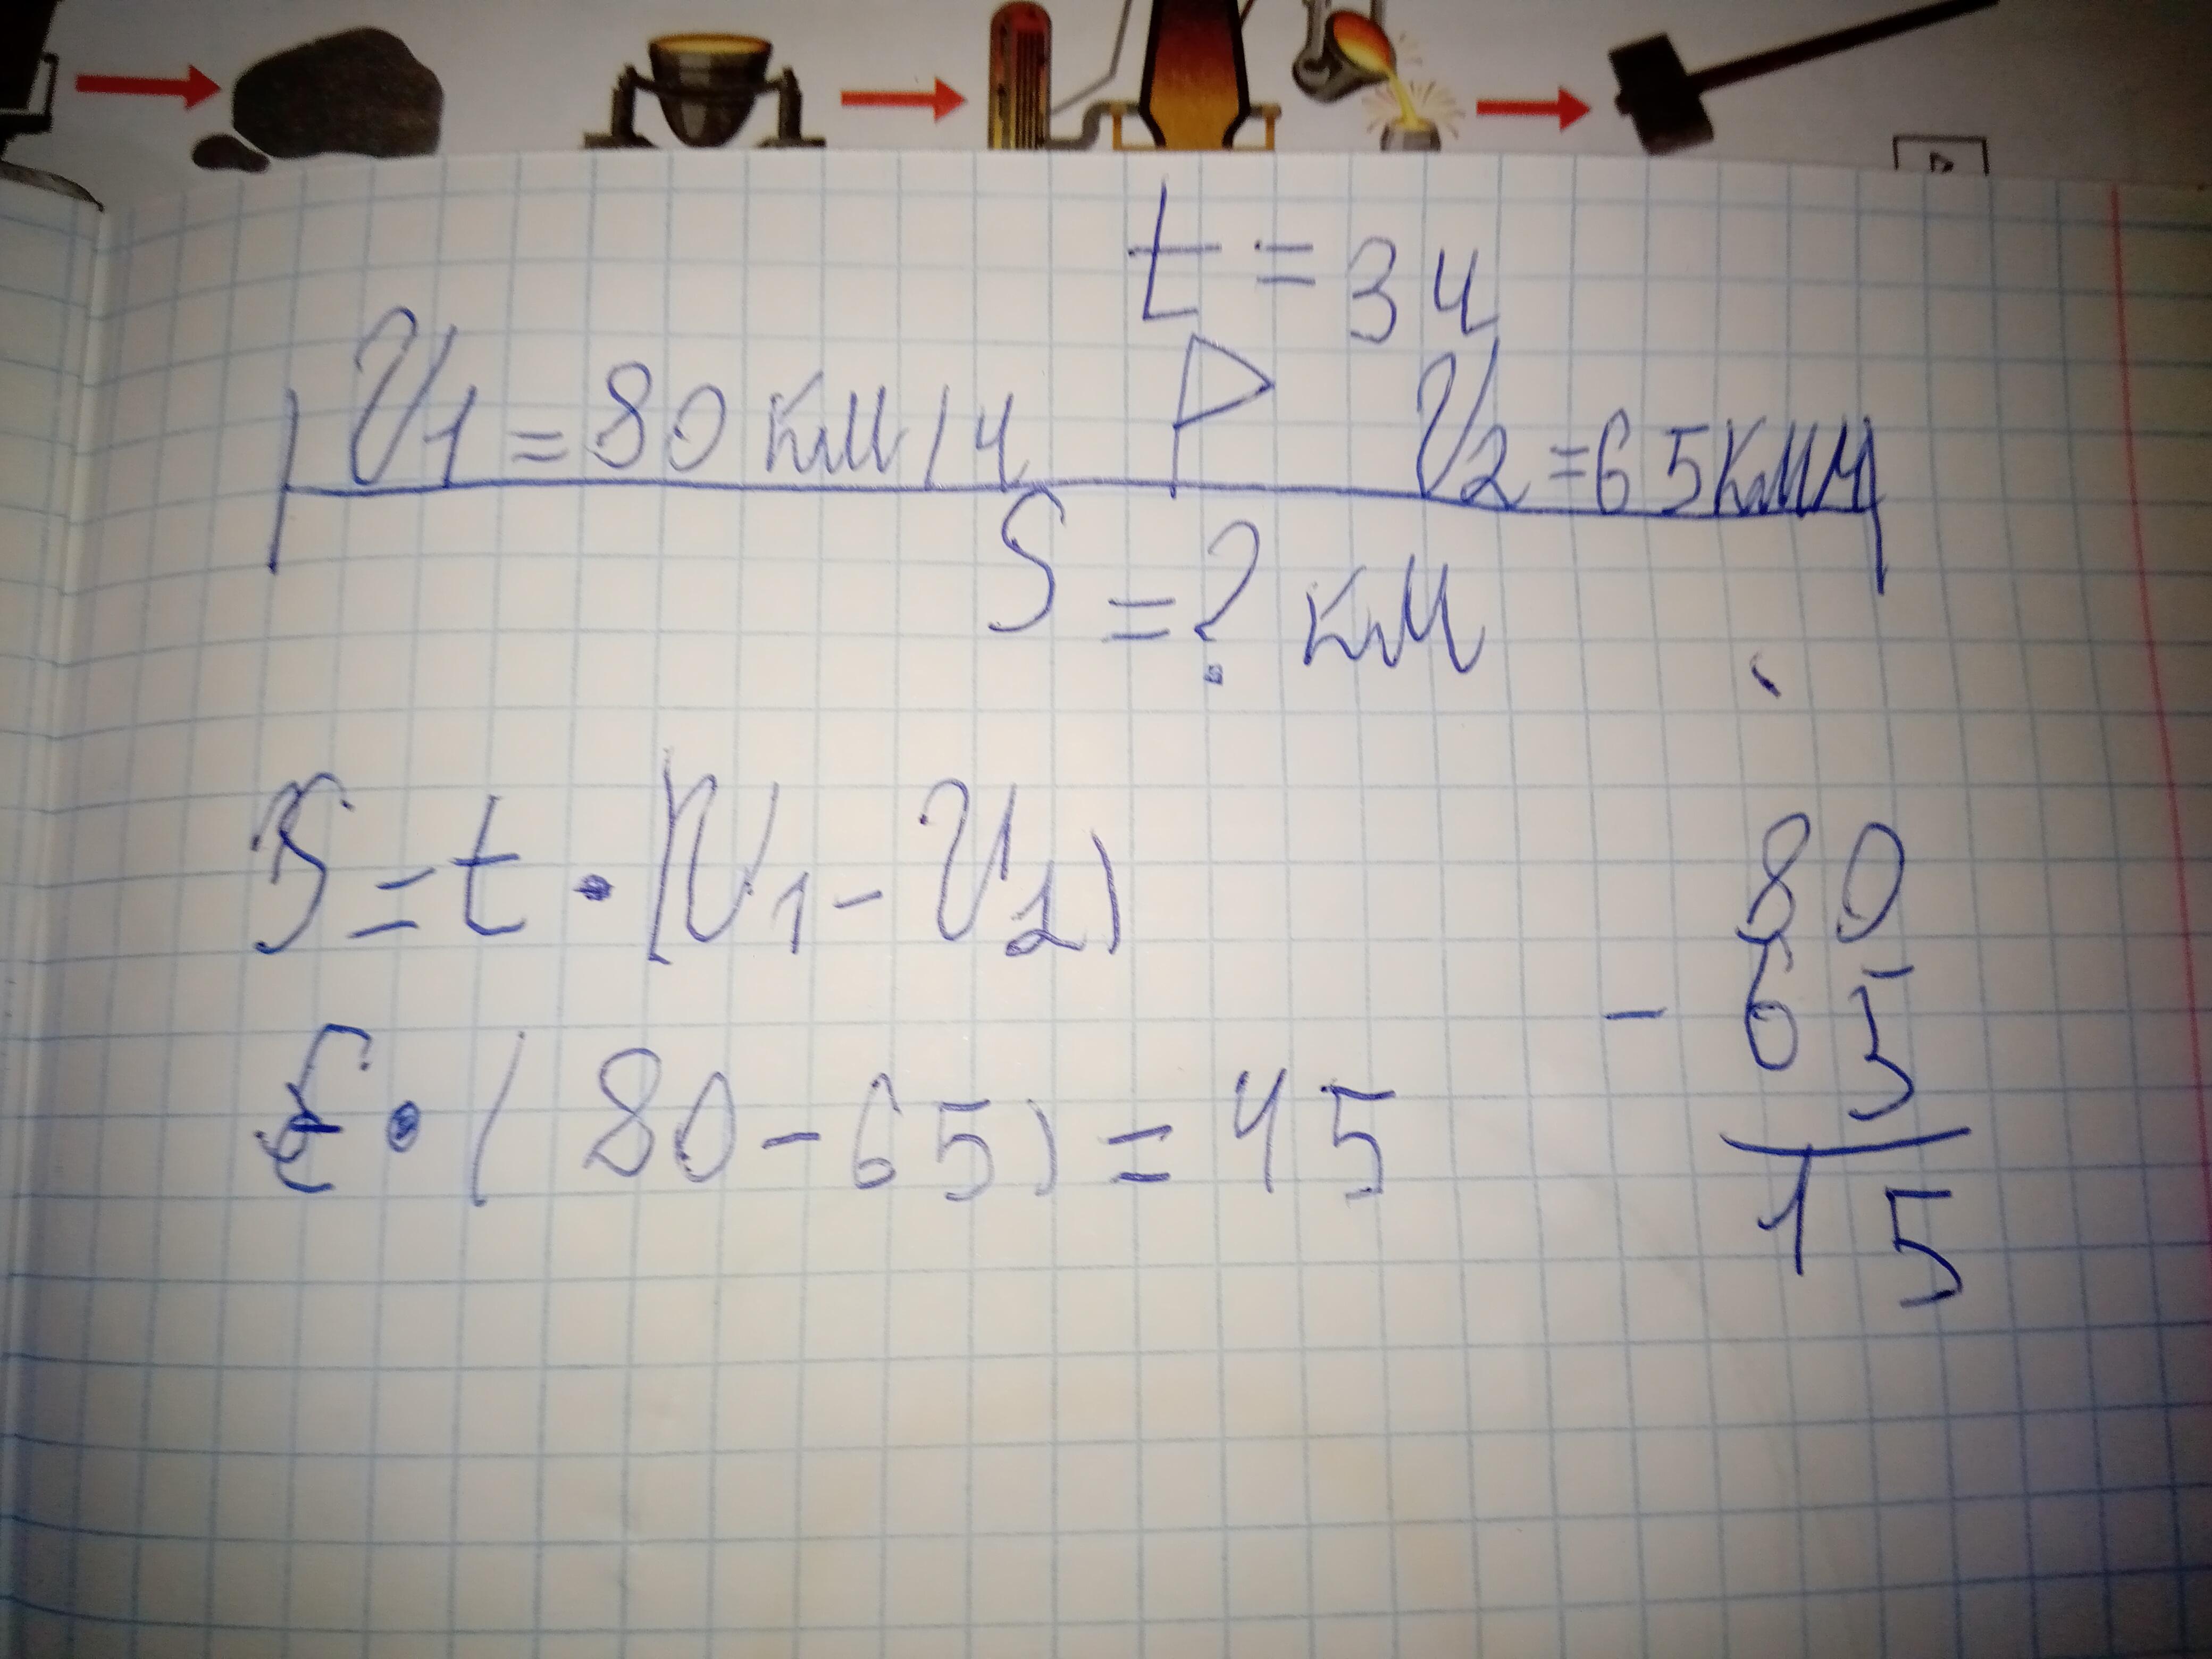 t = 3 ч
V1 = 80 км/ч V2 = 65 км/ч
S = ? км
S = t · (V1 - V2)
· (80 - 65) = 45
80
- 65
15